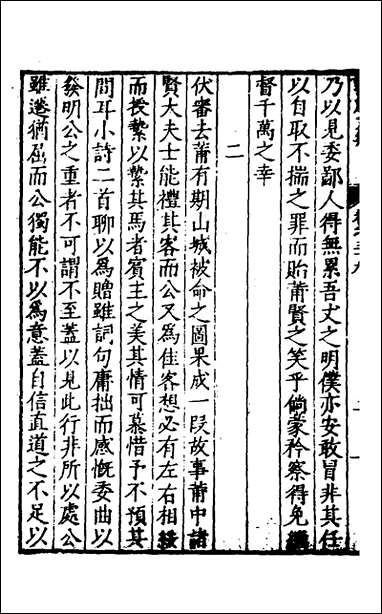 乃以見委鄙人得無累吾丈之明僕亦安敢冒非其任
以自取不揣之罪而貽莆賢之笑乎倘蒙矜察得免
督千萬之幸
二
伏審去莆有期山城被命之圖果成一段故事莆中諸
賢大夫士能禮其客而公又為佳客想必有左右相
而授縶以縶其馬者賓主之美其情可慕惜予不預其
間耳小詩二首聊以為贈雖詞句庸拙而感慨委曲以
發明公之重者不可謂不至蓋以見此行非所以處公
雖遷猶屈而公獨能不以爲意蓋自信直道之不足以